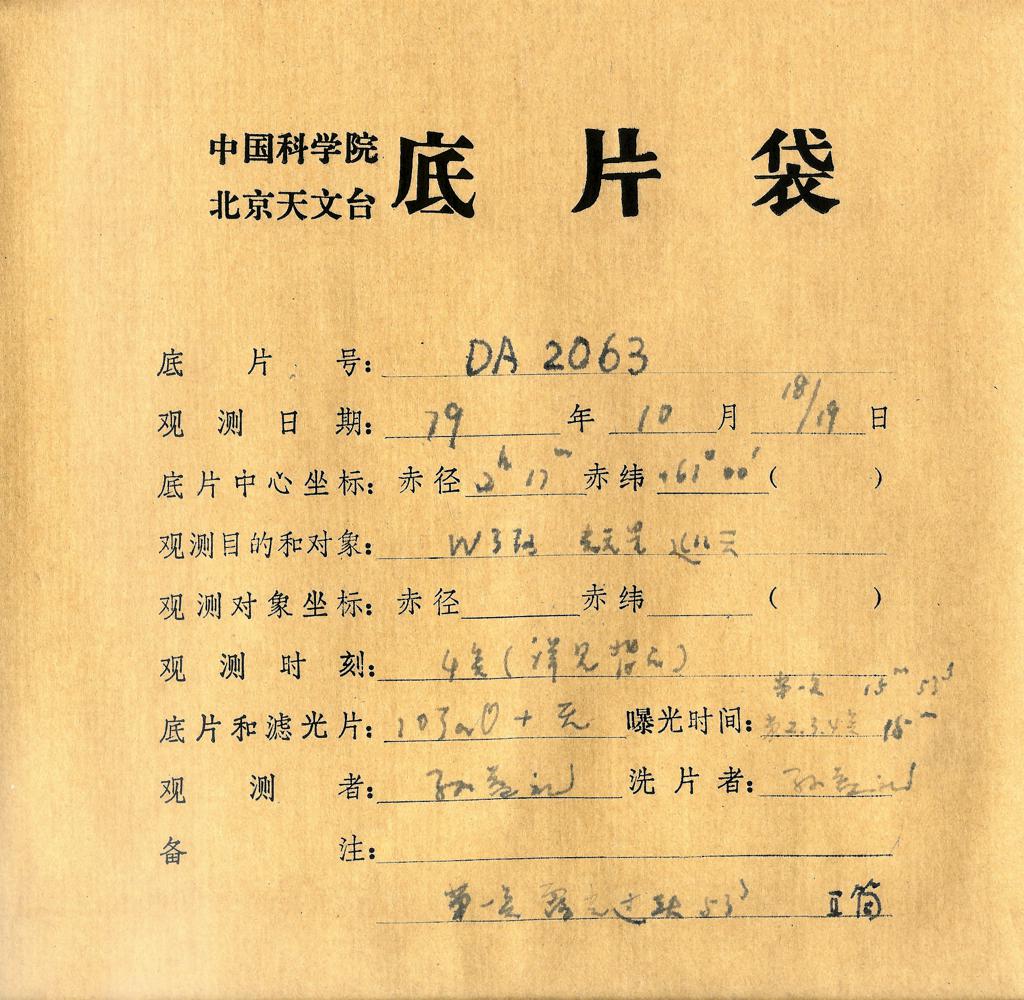 中国科学院
北京天文台
底片袋
底片号: DA 2063
观测日期: 79 年 10 月 18/19 日
底片中心坐标: 赤径 2ʰ 17ᵐ 赤纬 +61° 00′ ( )
观测目的和对象: W3
观测对象坐标: 赤径 赤纬 ( )
观测时刻: 4次(详见指示)
第一次 15ᵐ 53ˢ
底片和滤光片: 103aO + 无 曝光时间: 第2.3.4次 15ᵐ
观测者: 洗片者:
备注:
第一次露光过头 53ˢ II筒